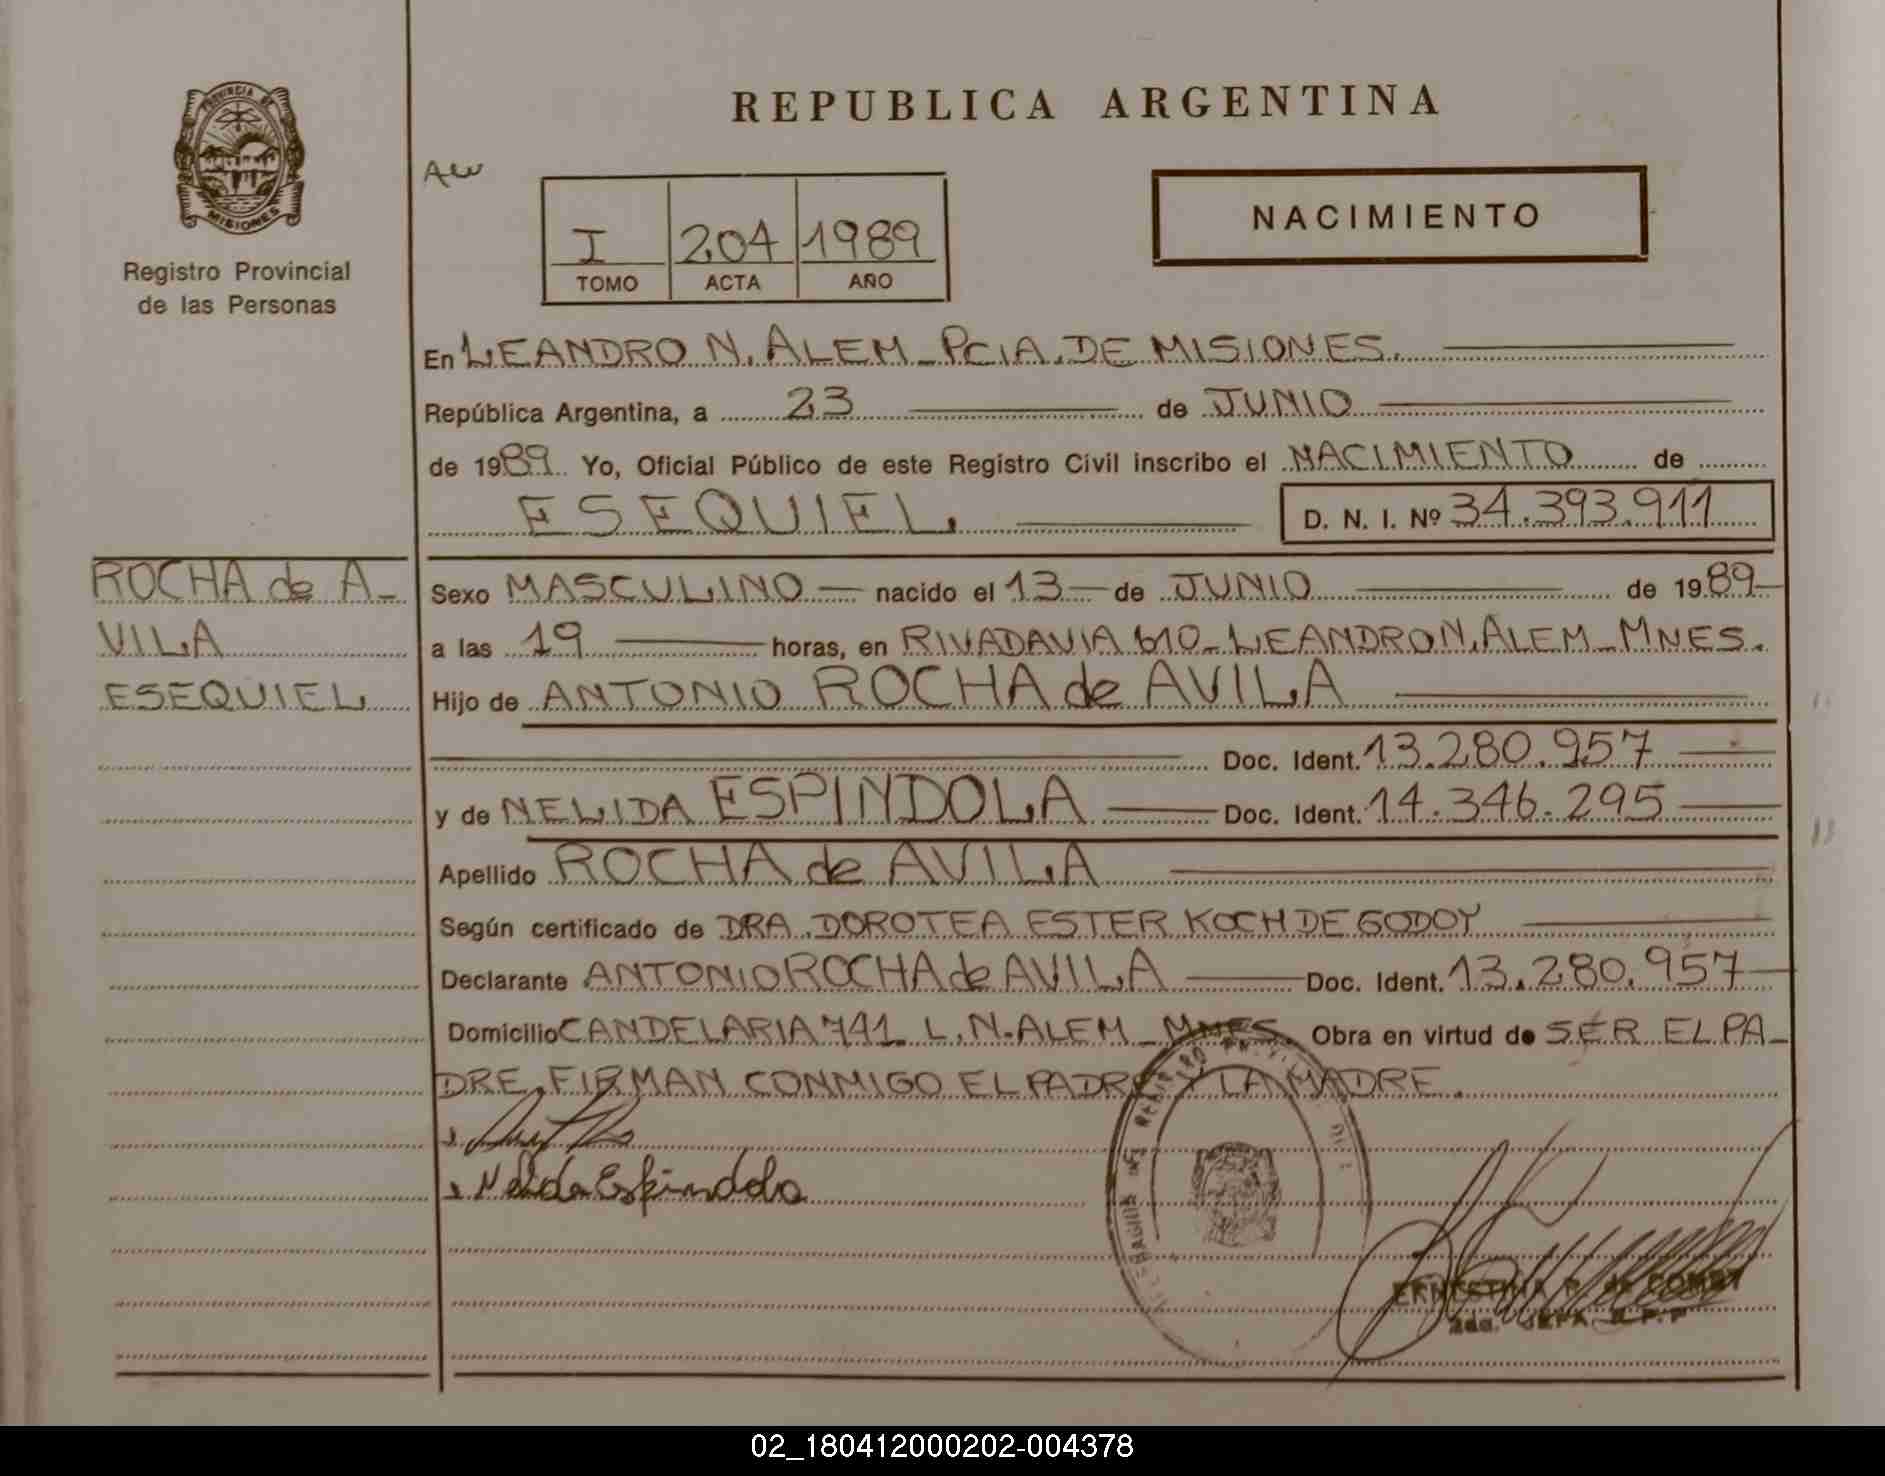 PROVINCIA DE
MISIONES
Registro Provincial
de las Personas
REPUBLICA ARGENTINA
I 204 1989
TOMO ACTA AÑO
NACIMIENTO
En LEANDRO N. ALEM - PCIA. DE MISIONES.
República Argentina, a 23 de JUNIO
de 1989 Yo, Oficial Público de este Registro Civil inscribo el NACIMIENTO de
ESEQUIEL. D. N. I. Nº 34.393.911
ROCHA de A-
VILA
ESEQUIEL
Sexo MASCULINO nacido el 13 de JUNIO de 1989
a las 19 horas, en RIVADAVIA 610 - LEANDRO N. ALEM - MNES.
Hijo de ANTONIO ROCHA de AVILA
Doc. Ident. 13.280.957
y de NELIDA ESPINDOLA Doc. Ident. 14.346.295
Apellido ROCHA de AVILA
Según certificado de DRA. DOROTEA ESTER KOCH DE GODOY
Declarante ANTONIO ROCHA de AVILA Doc. Ident. 13.280.957
Domicilio CANDELARIA 741 L. N. ALEM - MNES. Obra en virtud de SER EL PA-
DRE. FIRMAN CONMIGO EL PADRE Y LA MADRE.
Nelida Espindola
ERNESTINA
2da. JEFA
02_180412000202-004378